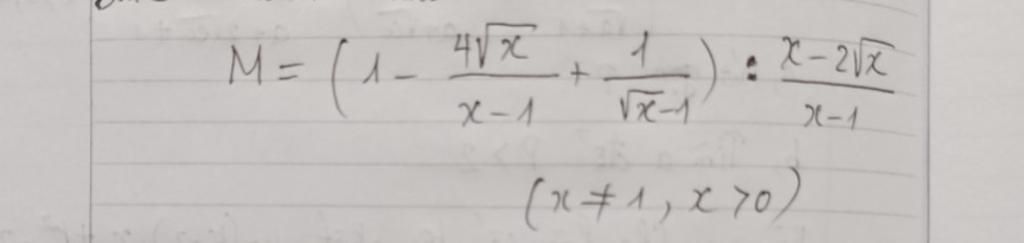 M = (1 - 4√x / x-1 + 1 / √x-1) : x-2√x / x-1
(x ≠ 1, x > 0)